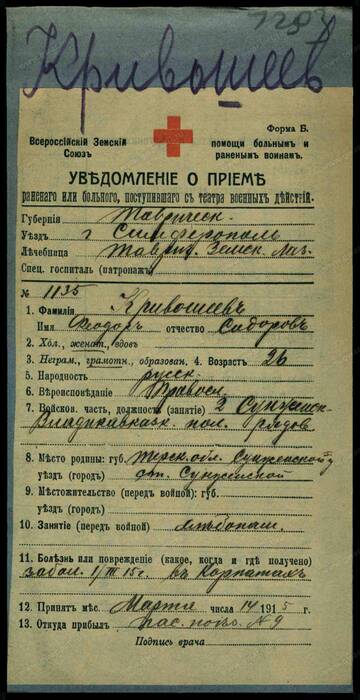 Кривошеев
Форма Б.
Всероссійскій Земскій
Союзъ
помощи больнымъ и
раненымъ воинамъ.
УВѢДОМЛЕНІЕ О ПРІЕМѢ
раненаго или больного, поступившаго съ театра военныхъ дѣйствій.
Губернія Таврическ.
Уѣздъ г Симферополь
Лѣчебница Таврич. Земск. Лаз.
Спец. госпиталь (патронажъ)
№ 1135
1. Фамилія Кривошеевъ
Имя Феодоръ отчество Сидоровъ
2. Хол., женат., вдовъ
3. Неграм., грамотн., образован. 4. Возрастъ 26
5. Народность русск.
6. Вѣроисповѣданіе Правосл.
7. Войсков. часть, должность (занятіе) 2 Сунженск.
Владикавказк. пол. рядов.
8. Мѣсто родины: губ. Терск. обл. Сунженской
уѣздъ (городъ) ст. Сунженской
9. Мѣстожительство (передъ войной): губ.
уѣздъ (городъ)
10. Занятіе (передъ войной) хлѣбопаш.
11. Болѣзнь или поврежденіе (какое, когда и гдѣ получено)
забол. 1/III 15г. въ Карпатахъ
12. Принятъ мѣс. Марта числа 14 1915 г.
13. Откуда прибылъ № 9
Подпись врача